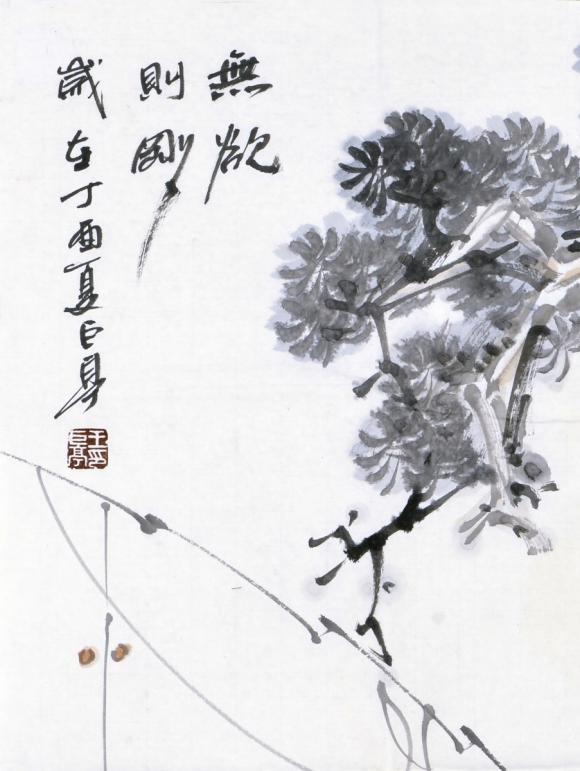 無欲
則剛
歲在丁酉夏巨亭
王巨亭印